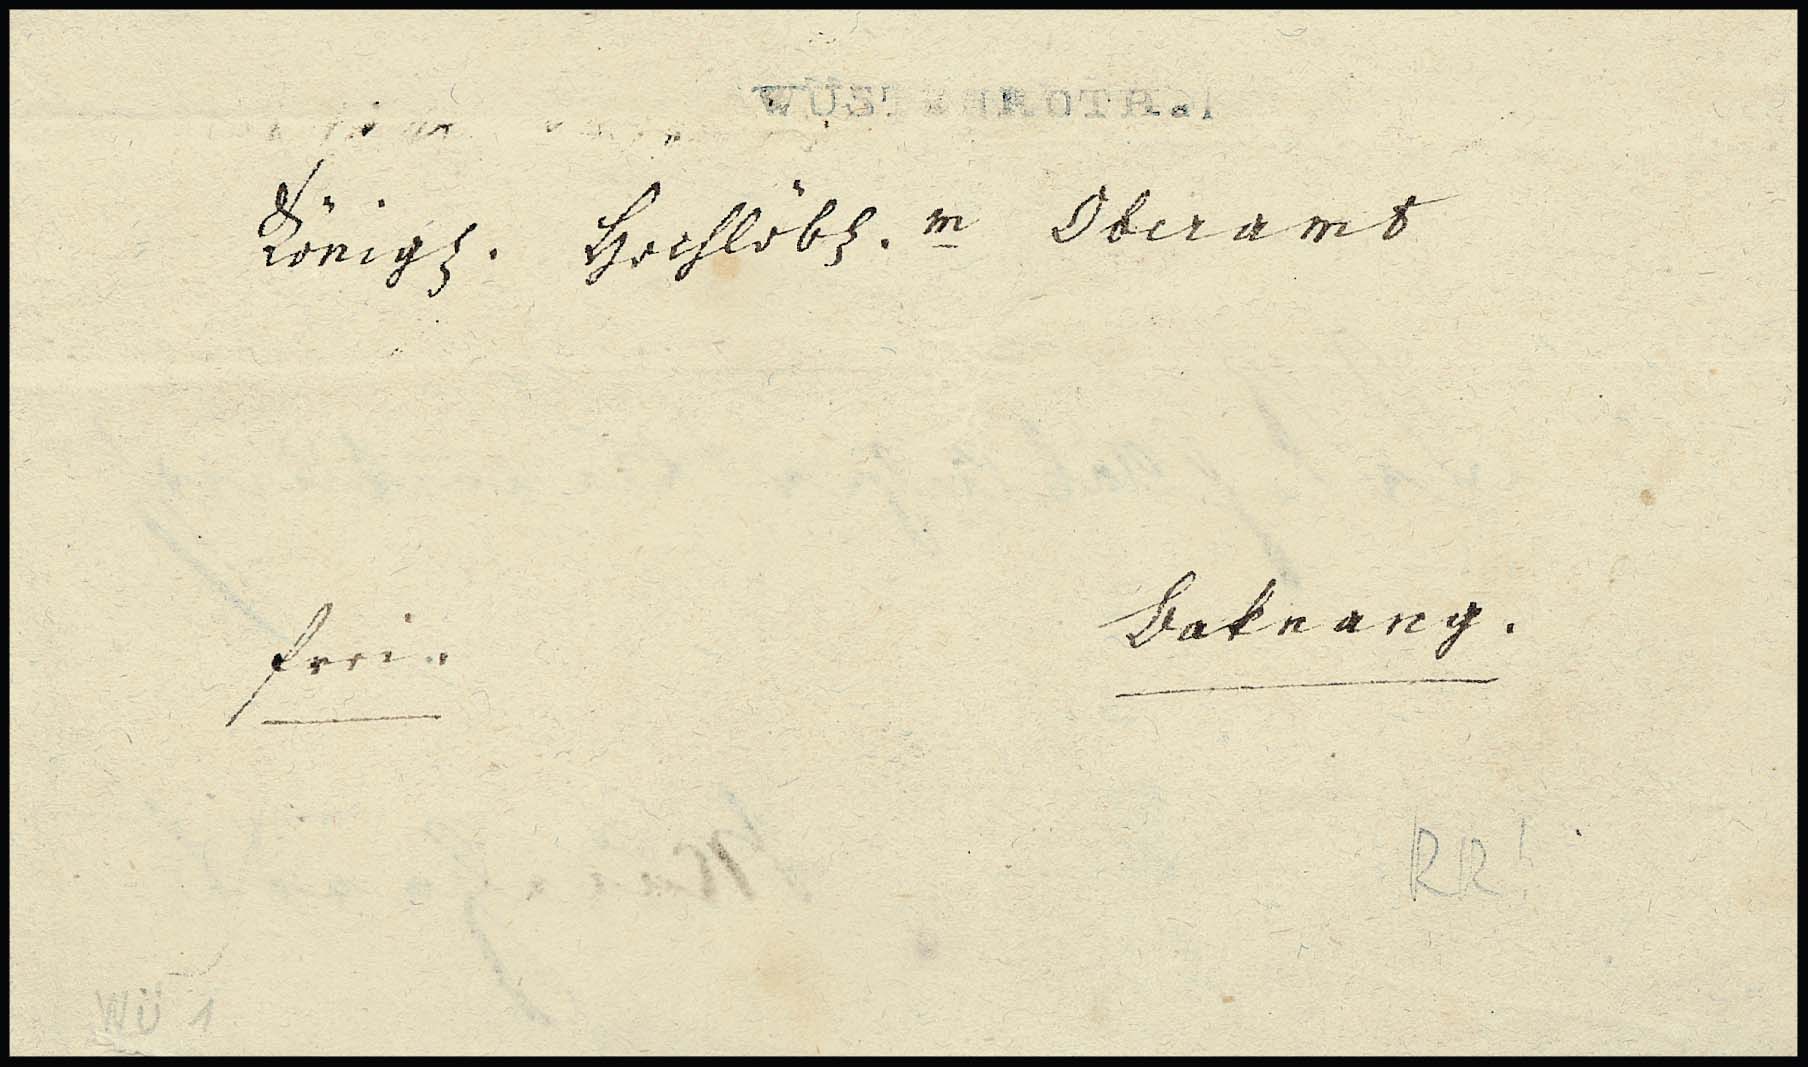 WÜSTENROTH.
Königl. Hochlöbl. m Oberamt
Baknang.
frei.
RR!
WÜ 1